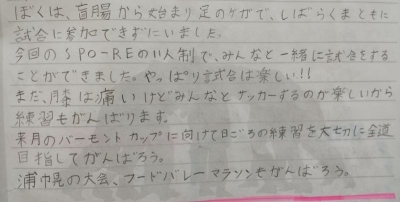 ぼくは、盲腸から始まり足のケガで、しばらくまともに
試合に参加できずにいました。
今回のSPO-REの11人制で、みんなと一緒に試合をする
ことができました。やっぱり試合は楽しい!!
まだ、膝は痛いけどみんなとサッカーするのが楽しいから
練習もがんばります。
来月のバーモントカップに向けて日ごろの練習を大切に全道
目指してがんばろう。
浦幌の大会、フードバレーマラソンもがんばろう。